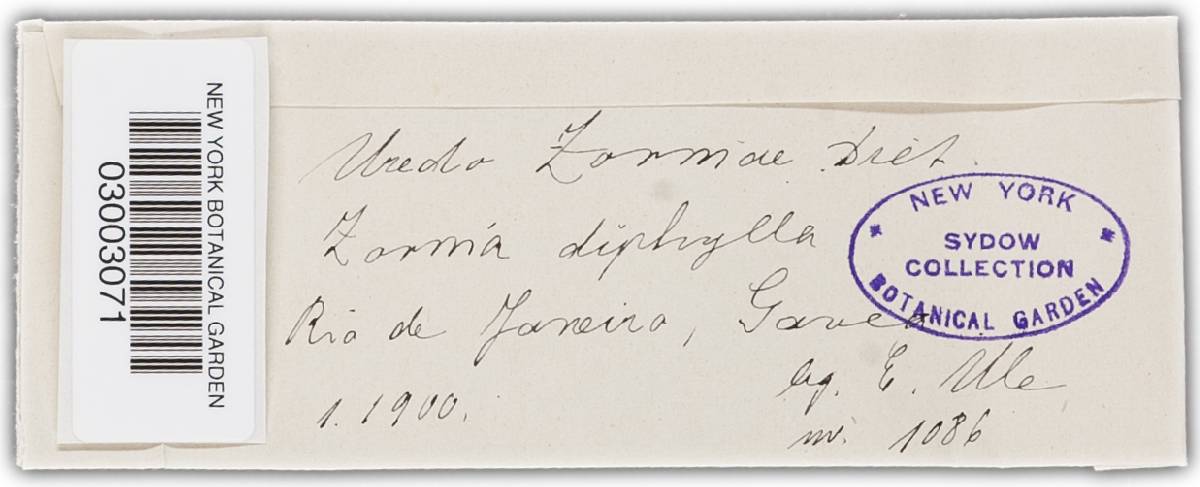 NEW YORK BOTANICAL GARDEN
03003071
Uredo Zorniae Diet.
Zornia diphylla
Rio de Janeiro, Gavea
leg. E. Ule
1. 1900.
nr. 1086
NEW YORK
SYDOW
COLLECTION
BOTANICAL GARDEN